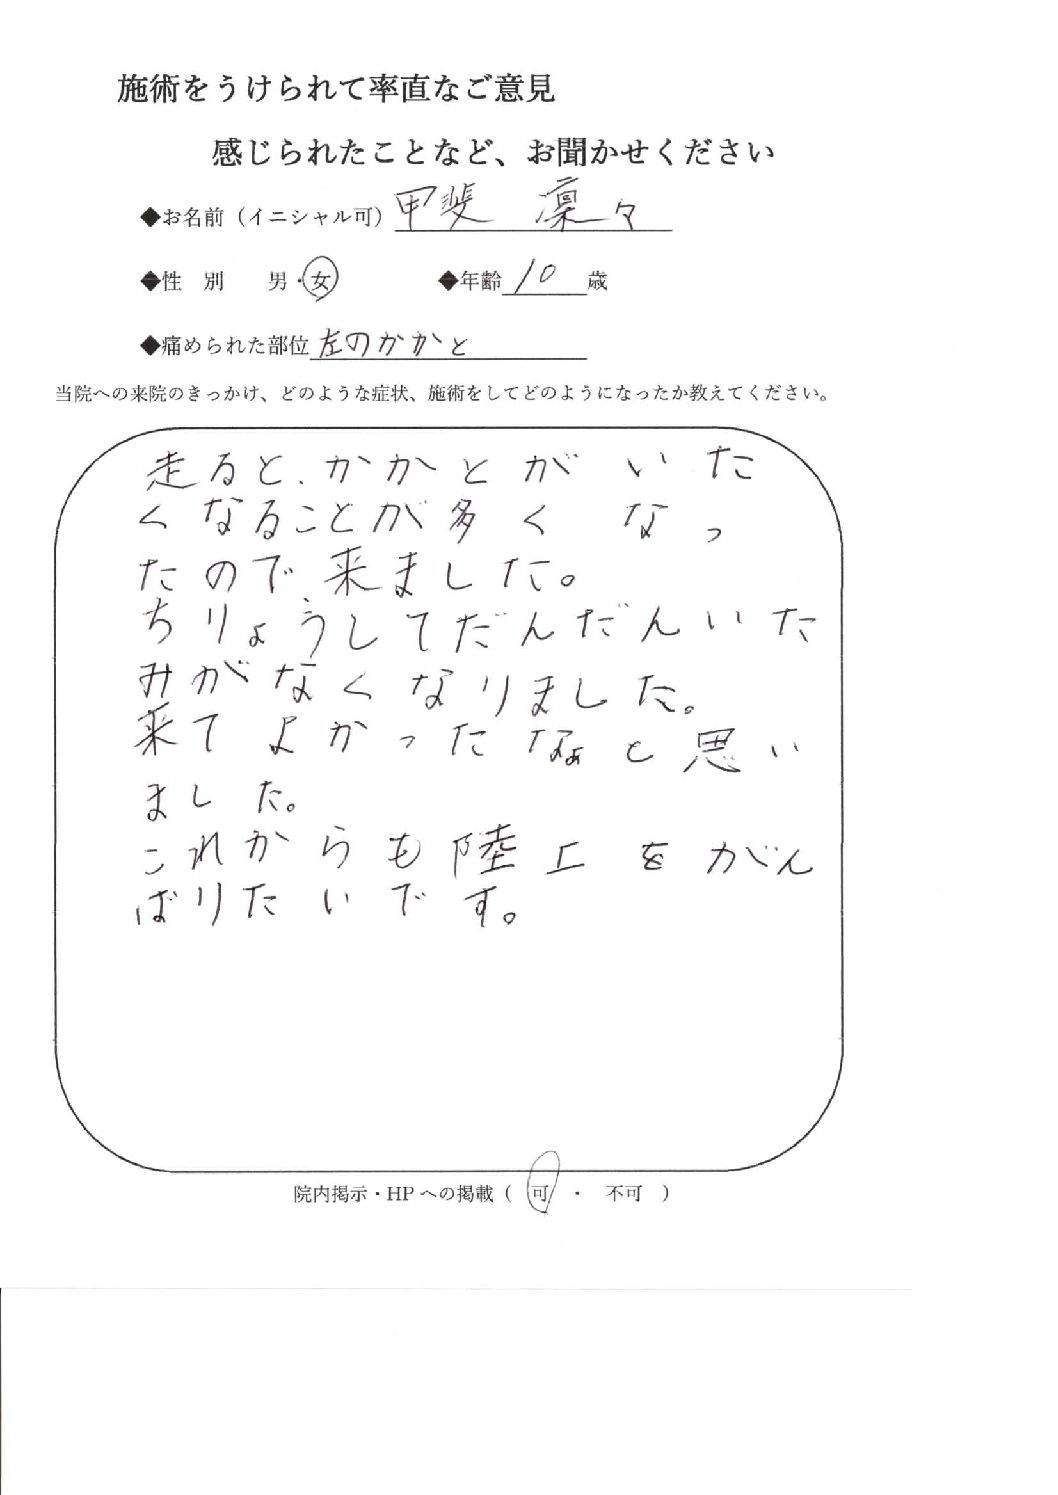 施術をうけられて率直なご意見
感じられたことなど、お聞かせください
◆お名前（イニシャル可） 甲斐 凜々
◆性 別 男・女 ◆年齢 10 歳
◆痛められた部位 左のかかと
当院への来院のきっかけ、どのような症状、施術をしてどのようになったか教えてください。
走ると、かかとがいた
くなることが多くなっ
たので来ました。
ちりょうしてだんだんいた
みがなくなりました。
来てよかったなぁと思い
ました。
これからも陸上をがん
ばりたいです。
院内掲示・HPへの掲載（ 可 ・ 不可 ）